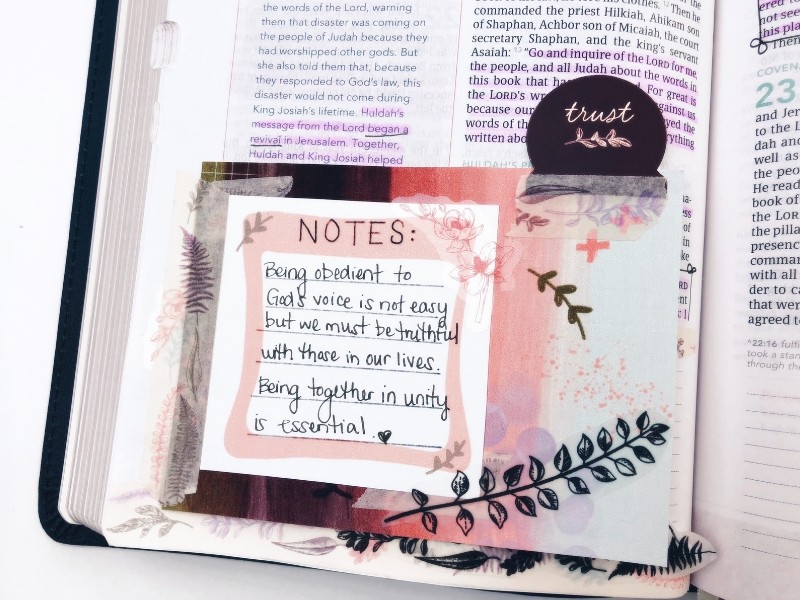 the words of the Lord, warning
them that disaster was coming on
the people of Judah because they
had worshipped other gods. But
she also told them that, because
they responded to God's law, this
disaster would not come during
King Josiah's lifetime. Huldah's
message from the Lord began a
revival in Jerusalem. Together,
Huldah and King Josiah helped
commanded the priest Hilkiah, Ahikam son
of Shaphan, Achbor son of Micaiah, the court
secretary Shaphan, and the king's servant
Asaiah: 13 "Go and inquire of the LORD for me,
the people, and all Judah about the words in
this book that has For great is
the LORD's against us
because our
words of the everything
written abo
HULDAH'S
trust
NOTES:
Being obedient to
God's voice is not easy
but we must be truthful
with those in our lives.
Being together in unity
is essential.
this pla
COVEN
23
and Jer
to the L
dah and
well as
the peo
He read
book of
the LOR
the pilla
presenc
comman
with all
der to ca
that were
agreed to
^22:16 fulfi
took a stan
through the